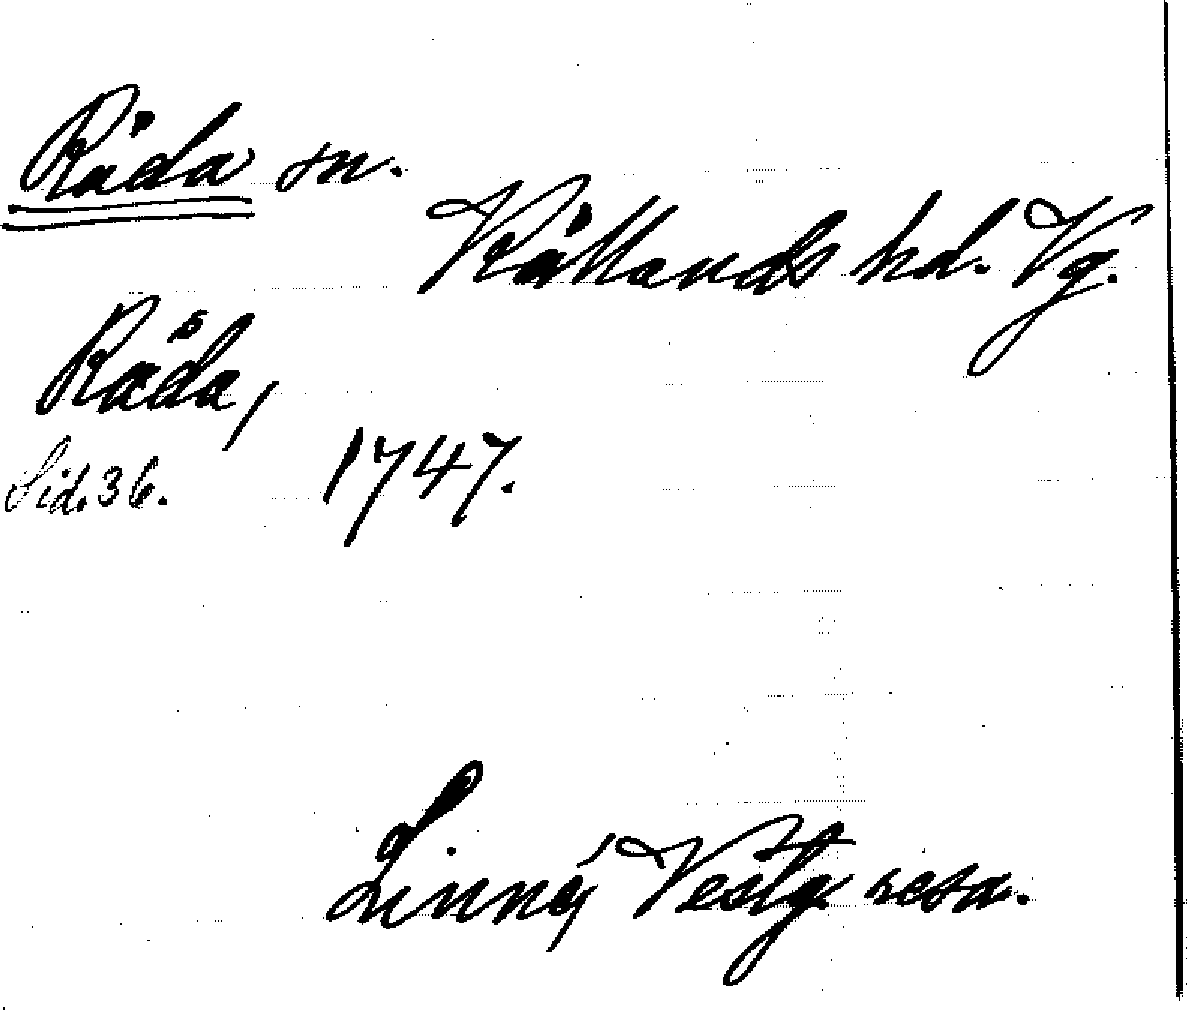 Råda sn.
Kållands hd. Vg.
Råda,
Sid. 36. 1747.
Linné, Vestg. resa.